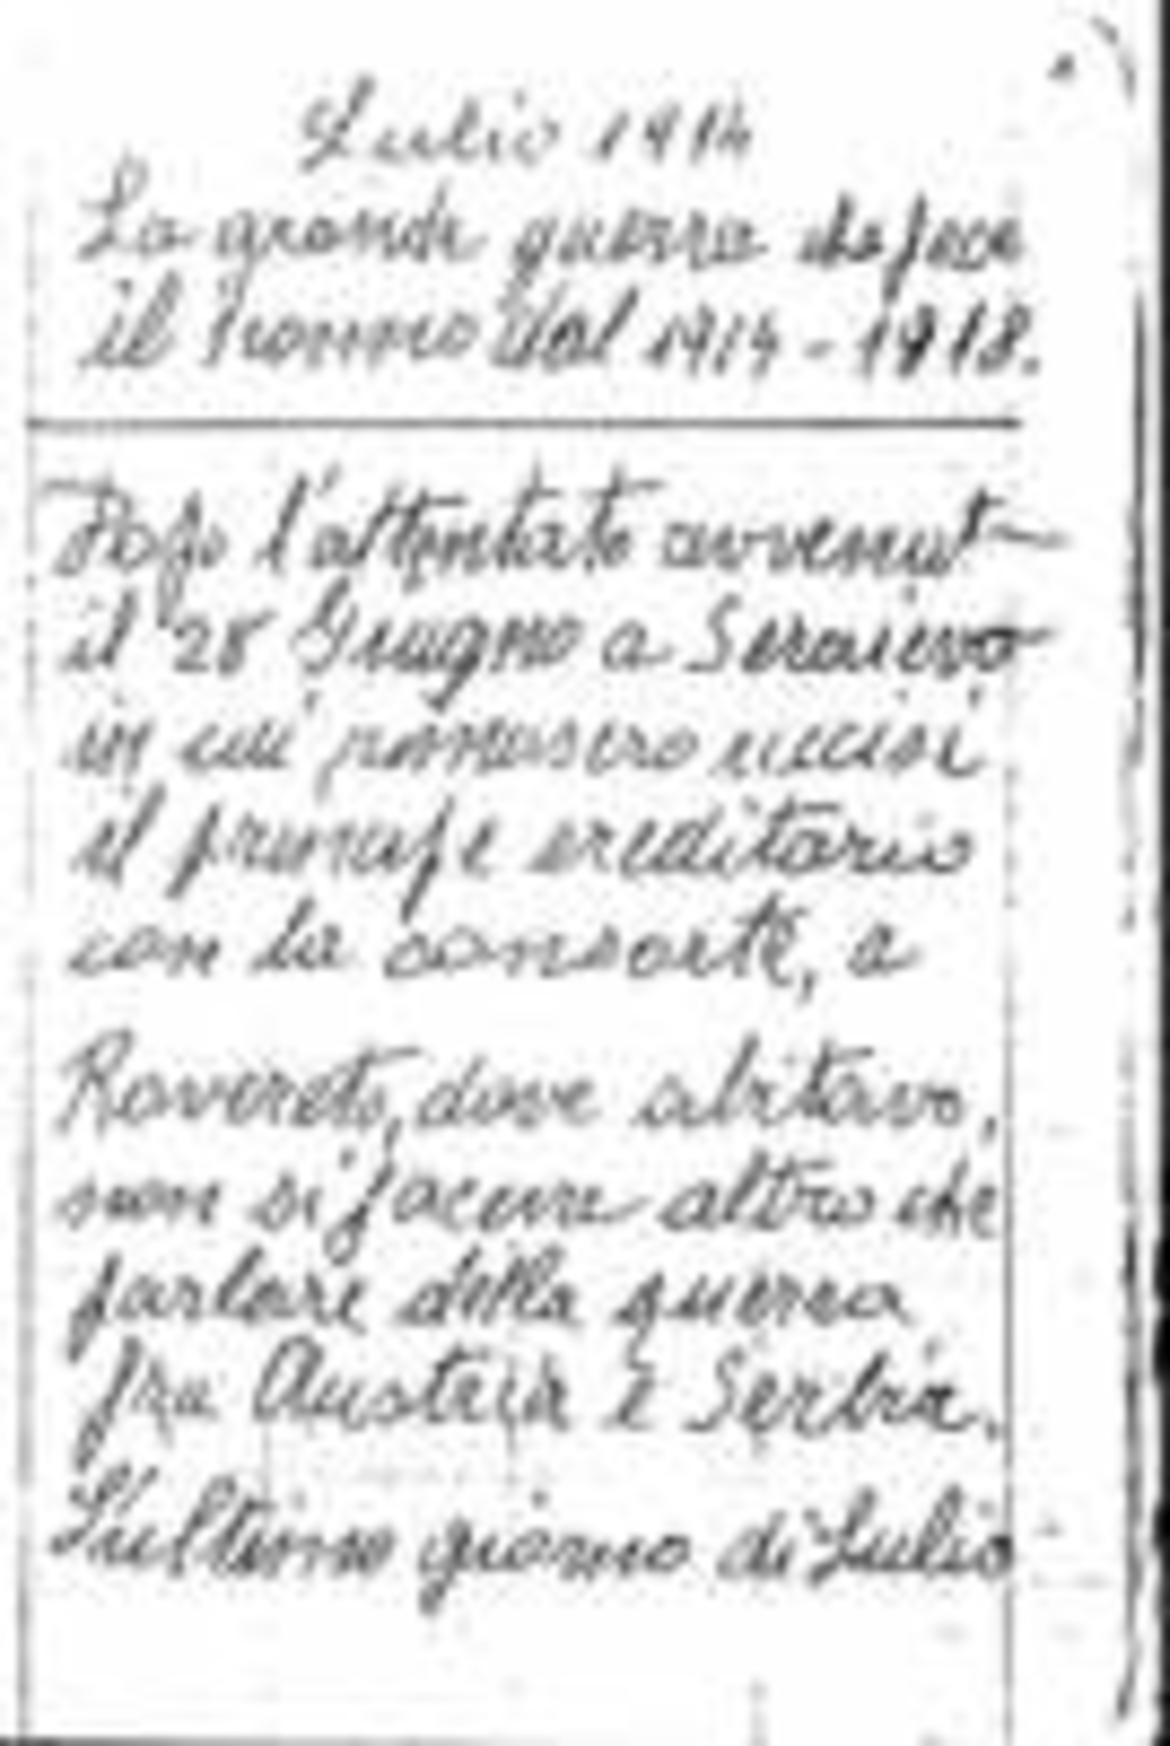 Lulio 1914
La grande guerra che fece
il nonno dal 1914-1918.
Dopo l'attentato avvenut
il 28 Giugno a Seraievo
in cui rimasero uccisi
il principe ereditario
con la consorte, a
Rovereto, dove abitavo,
non si faceva altro che
parlare della guerra
fra Austria e Serbia.
L'ultimo giorno di Lulio